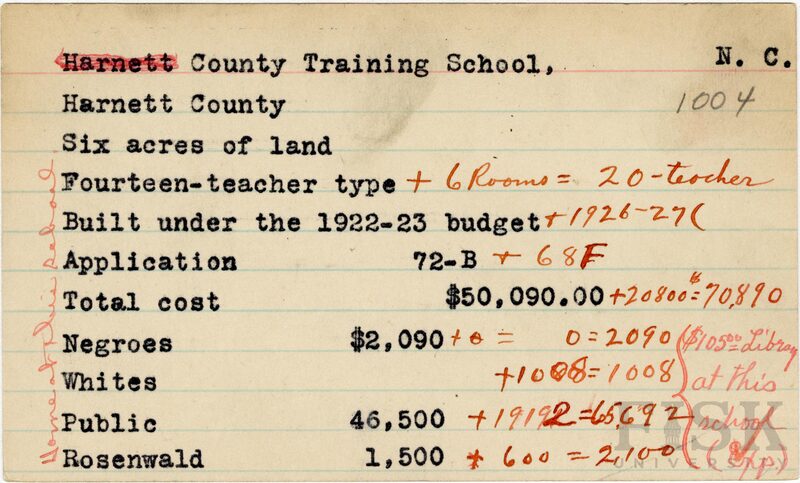 Harnett County Training School, N. C.
Harnett County 1004
Six acres of land
Fourteen-teacher type + 6 Rooms = 20-teacher
Built under the 1922-23 budget + 1926-27(
Application 72-B + 68F
Total cost $50,090.00 + 20800 = $70,890
Negroes $2,090 + 0 = 0 = 2090
Whites +1008 = 1008
Public 46,500 + 19192 = 65,692
Rosenwald 1,500 + 600 = 2,100
$105.00 Library
at this
school
FISK
UNIVERSITY